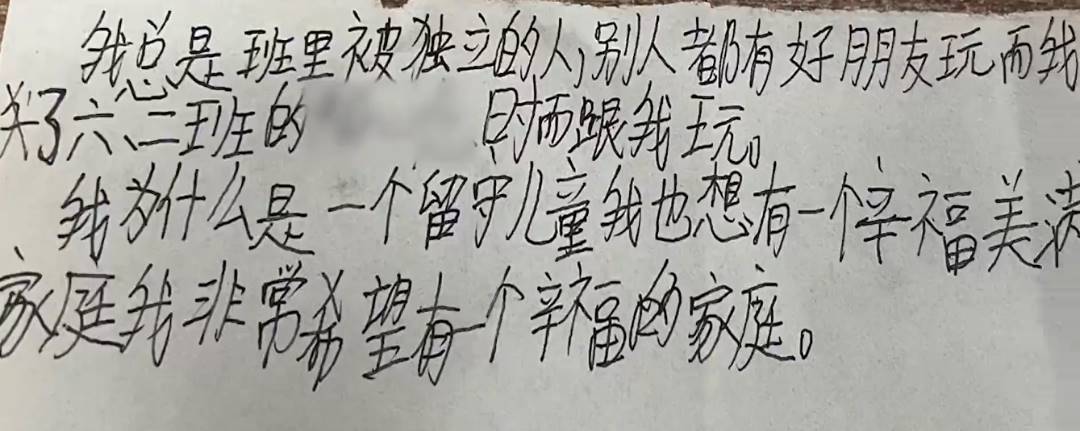 我总是班里被独立的人,别人都有好朋友玩而我
关了六、二班的 时而跟我玩。
我为什么是一个留守儿童我也想有一个辛福美满
家庭我非常希望有一个辛福的家庭。